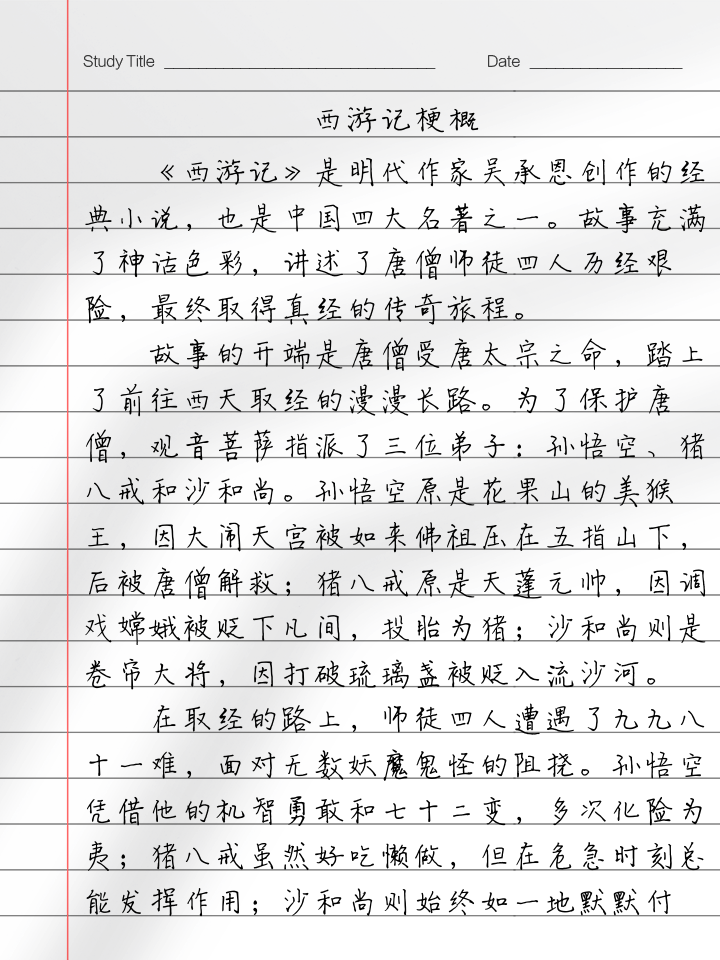 Study Title
Date
西游记梗概
《西游记》是明代作家吴承恩创作的经
典小说，也是中国四大名著之一。故事充满
了神话色彩，讲述了唐僧师徒四人历经艰
险，最终取得真经的传奇旅程。
故事的开端是唐僧受唐太宗之命，踏上
了前往西天取经的漫漫长路。为了保护唐
僧，观音菩萨指派了三位弟子：孙悟空、猪
八戒和沙和尚。孙悟空原是花果山的美猴
王，因大闹天宫被如来佛祖压在五指山下，
后被唐僧解救；猪八戒原是天蓬元帅，因调
戏嫦娥被贬下凡间，投胎为猪；沙和尚则是
卷帘大将，因打破琉璃盏被贬入流沙河。
在取经的路上，师徒四人遭遇了九九八
十一难，面对无数妖魔鬼怪的阻挠。孙悟空
凭借他的机智勇敢和七十二变，多次化险为
夷；猪八戒虽然好吃懒做，但在危急时刻总
能发挥作用；沙和尚则始终如一地默默付